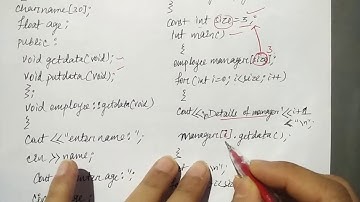 char name[30];
float age;
public:
void getdata(void);
void putdata(void);
};
void employee::getdata(void)
{
cout<<"enter name:";
cin >> name;
age:";
}
const int size=3;
int main()
{
3
employee manager[size];
for(int i=0; i<size; i++)
{
cout<<"\nDetails of manager"<<i+1
<<"\n";
manager[i].getdata();
}
\n";